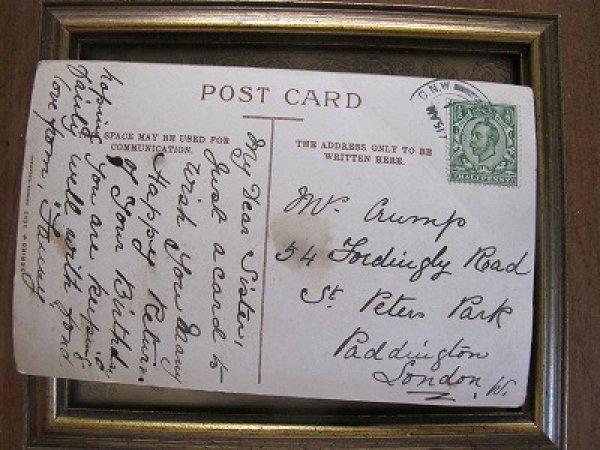 POST CARD
SPACE MAY BE USED FOR
COMMUNICATION.
THE ADDRESS ONLY TO BE
WRITTEN HERE.
My Dear Sister,
Just a card to
wish you many
Happy Returns
of your Birthday
hoping you are keeping
fairly well with fond
love from, Fanny
Mrs Crump
54 Fordingly Road
St Peters Park
Paddington
London, W.